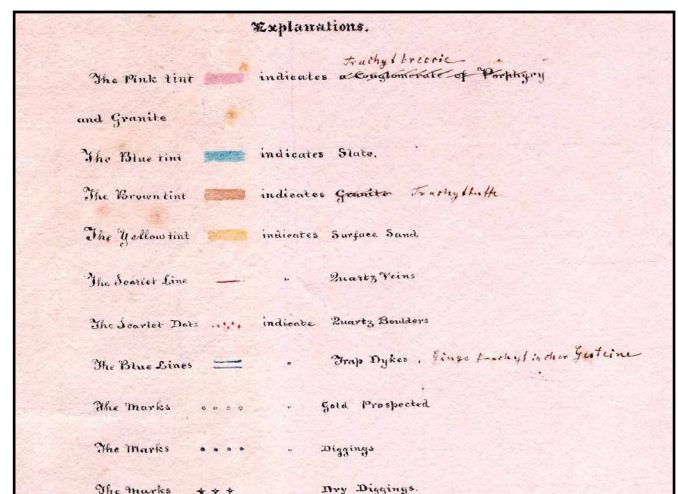 Explanations.
Trachytbreccie
The Pink tint indicates a Conglomerate of Porphyry
and Granite
The Blue tint indicates Slate.
The Brown tint indicates Granite Trachyttuffe
The Yellow tint indicates Surface Sand
The Scarlet Line " Quartz Veins
The Scarlet Dots indicate Quartz Boulders
The Blue Lines " Trap Dykes, Gänge trachytischer Gesteine
The Marks " Gold Prospected
The Marks " Diggings
The Marks Dry Diggings.